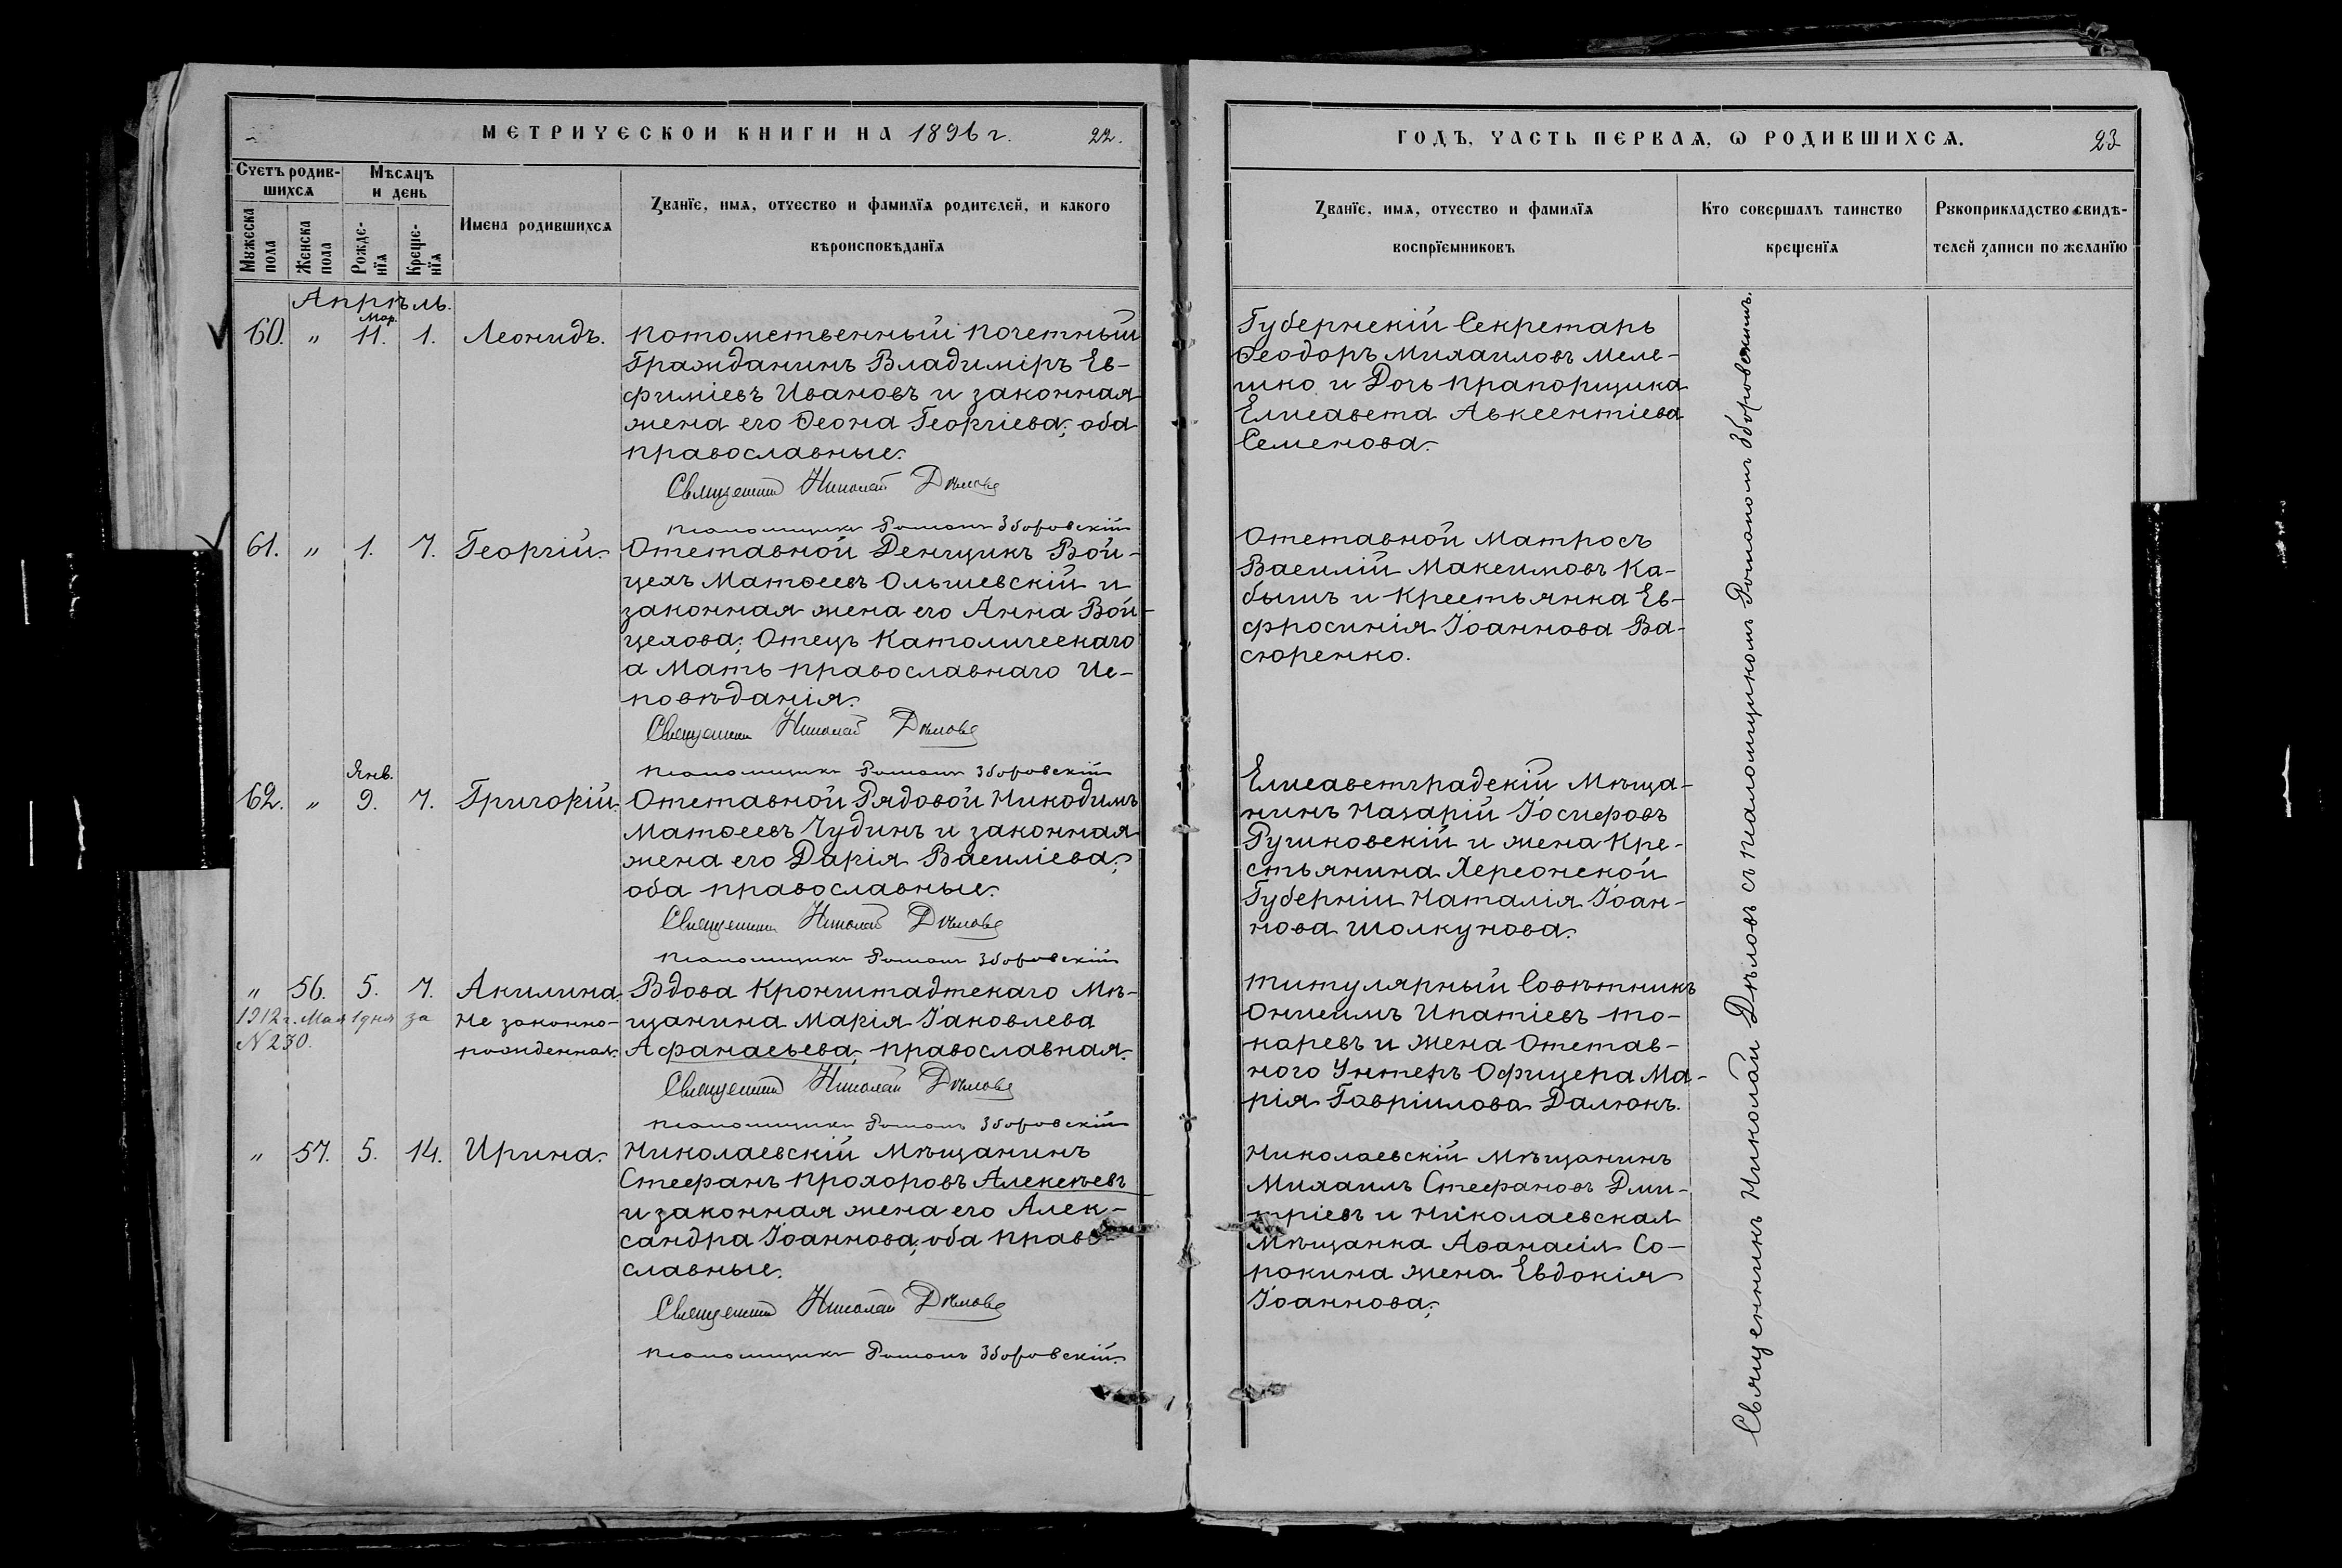 МЕТРИЧЕСКОЙ КНИГИ НА 1896 г. 22.
Счетъ родив-
шихся
Мѣсяцъ
и день
Мужеска
пола
Женска
пола
Рожде-
нїя
Креще-
нїя
Имена родившихся
Званїе, имя, отчество и фамилїя родителей, и какого
вѣроисповѣданїя
Апрѣль.
Мар.
60. " 11. 1. Леонидъ. Потомственный Почетный
Гражданинъ Владиміръ Ев-
фиміевъ Ивановъ и законная
жена его Ѳеона Георгіева; оба
православные.
Священникъ Николай Дѣловъ
псаломщикъ Романъ Зборовскій
61. " 1. 7. Георгій. Отставной Денщикъ Вой-
цехъ Матѳеевъ Ольшевскій и
законная жена его Анна Вой-
цехова; Отецъ Католическаго
а Мать православнаго Ис-
повѣданія.
Священникъ Николай Дѣловъ
псаломщикъ Романъ Зборовскій
Янв.
62. " 9. 7. Григорій. Отставной Рядовой Никодимъ
Матѳеевъ Чудинъ и законная
жена его Дарія Василіева;
оба православные.
Священникъ Николай Дѣловъ
псаломщикъ Романъ Зборовскій
" 56. 5. 7. Акилина Вдова Кронштадтскаго Мѣ-
1912 г. Мая 19 дня за не законно- щанина Марія Іаковлева
№ 230. рожденная. Афанасьева; православная.
Священникъ Николай Дѣловъ
псаломщикъ Романъ Зборовскій
" 57. 5. 14. Ирина. Николаевскій Мѣщанинъ
Стефанъ Прохоровъ Алексѣевъ
и законная жена его Алек-
сандра Іоаннова; оба право-
славные.
Священникъ Николай Дѣловъ
псаломщикъ Романъ Зборовскій.
ГОДЪ, ЧАСТЬ ПЕРВАЯ, Ѡ РОДИВШИХСЯ. 23
Званїе, имя, отчество и фамилїя
воспрїемниковъ
Кто совершалъ таинство
крещенїя
Рукоприкладство свидѣ-
телей записи по желанїю
Губернскій Секретарь
Ѳеодоръ Михаиловъ Меле-
шко и Дочь прапорщика
Елисавета Авксентіева
Семенова.
Отставной Матросъ
Василій Максимовъ Ка-
бышъ и Крестьянка Ев-
фросинія Іоаннова Ва-
сюренко.
Елисаветградскій Мѣща-
нинъ Назарій Іосифовъ
Ручковскій и жена Кре-
стьянина Херсонской
Губерніи Наталія Іоан-
нова Шолкунова.
Титулярный Совѣтникъ
Онисимъ Ипатіевъ То-
каревъ и жена Отстав-
ного Унтеръ Офицера Ма-
рія Гавріилова Далюкъ.
Николаевскій Мѣщанинъ
Михаилъ Стефановъ Дми-
тріевъ и Николаевская
Мѣщанка Аѳанасія Со-
рокина жена Евдокія
Іоаннова;
Священникъ Николай Дѣловъ съ псаломщикомъ Романомъ Зборовскимъ.